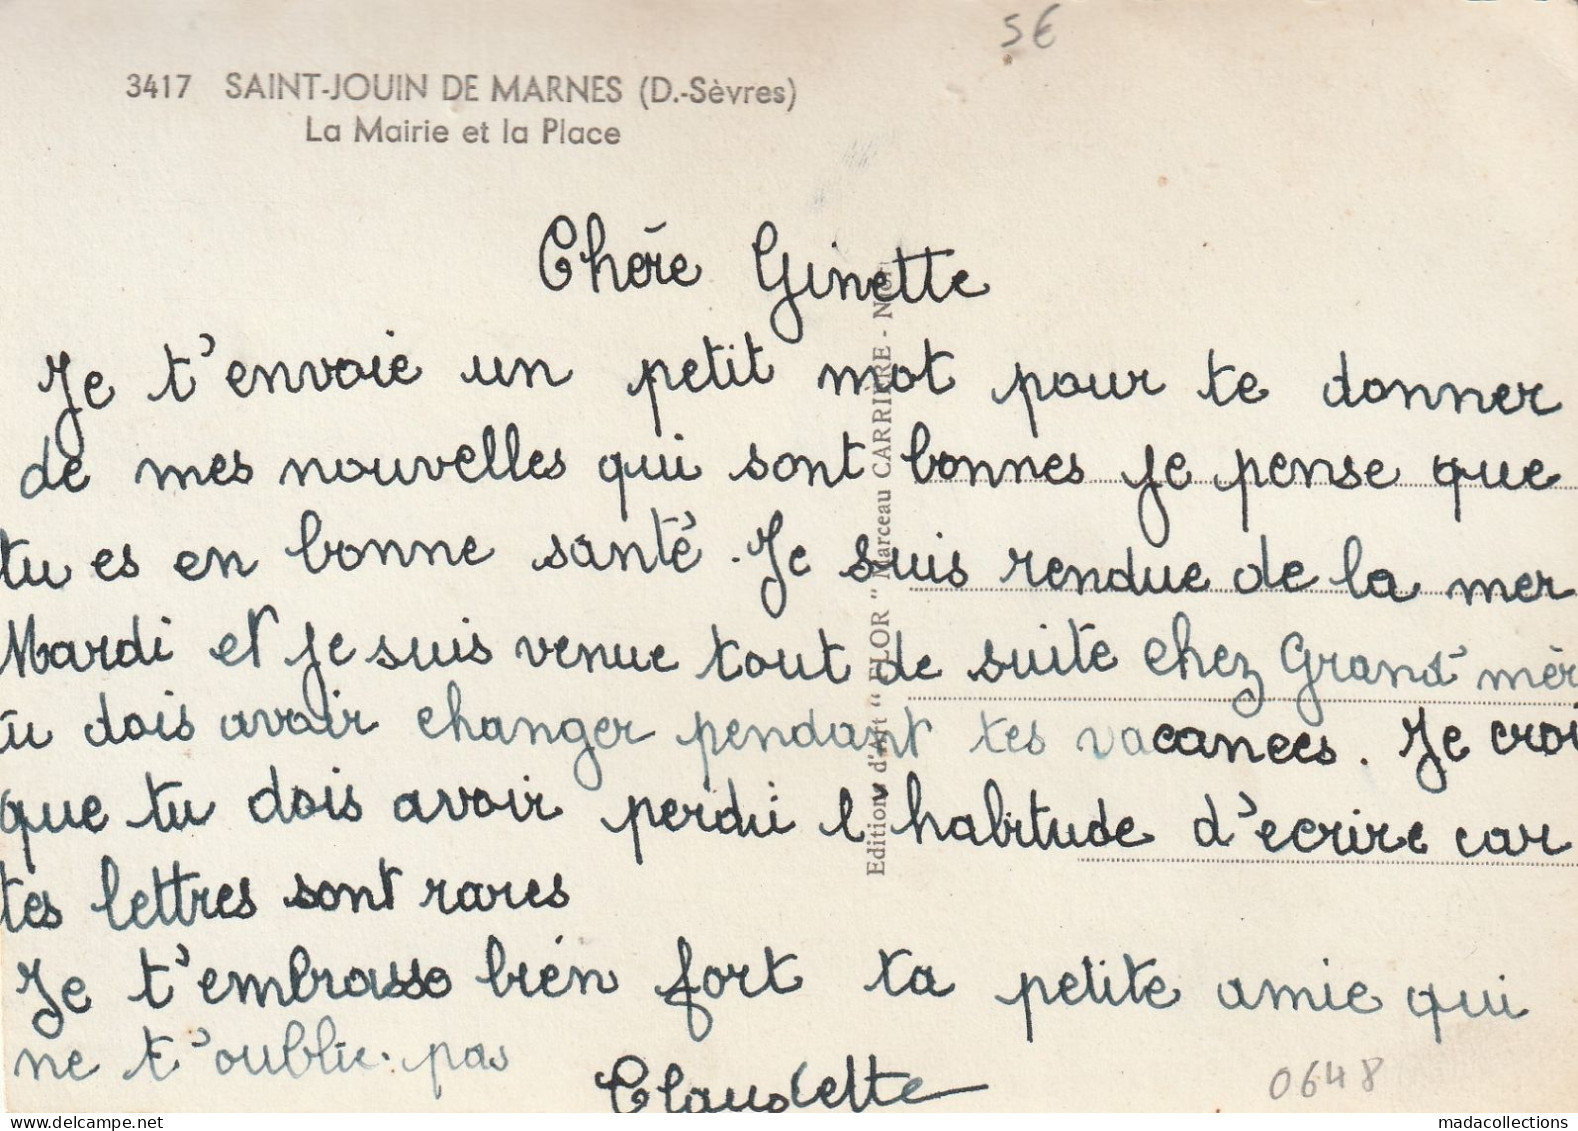 5€
3417 SAINT-JOUIN DE MARNES (D.-Sèvres)
La Mairie et la Place
Chère Ginette
Je t'envoie un petit mot pour te donner
de mes nouvelles qui sont bonnes je pense que
tu es en bonne santé. Je suis rendue de la mer
Mardi et je suis venue tout de suite chez Grand'mèr
tu dois avoir changer pendant tes vacances. Je croi
que tu dois avoir perdu l'habitude d'ecrire car
tes lettres sont rares
Je t'embrasse bien fort ta petite amie qui
ne t'oublie pas
Claudette
Editions d'Art "FLOR" Marceau CARRIERE - Niort
0648
madacollections